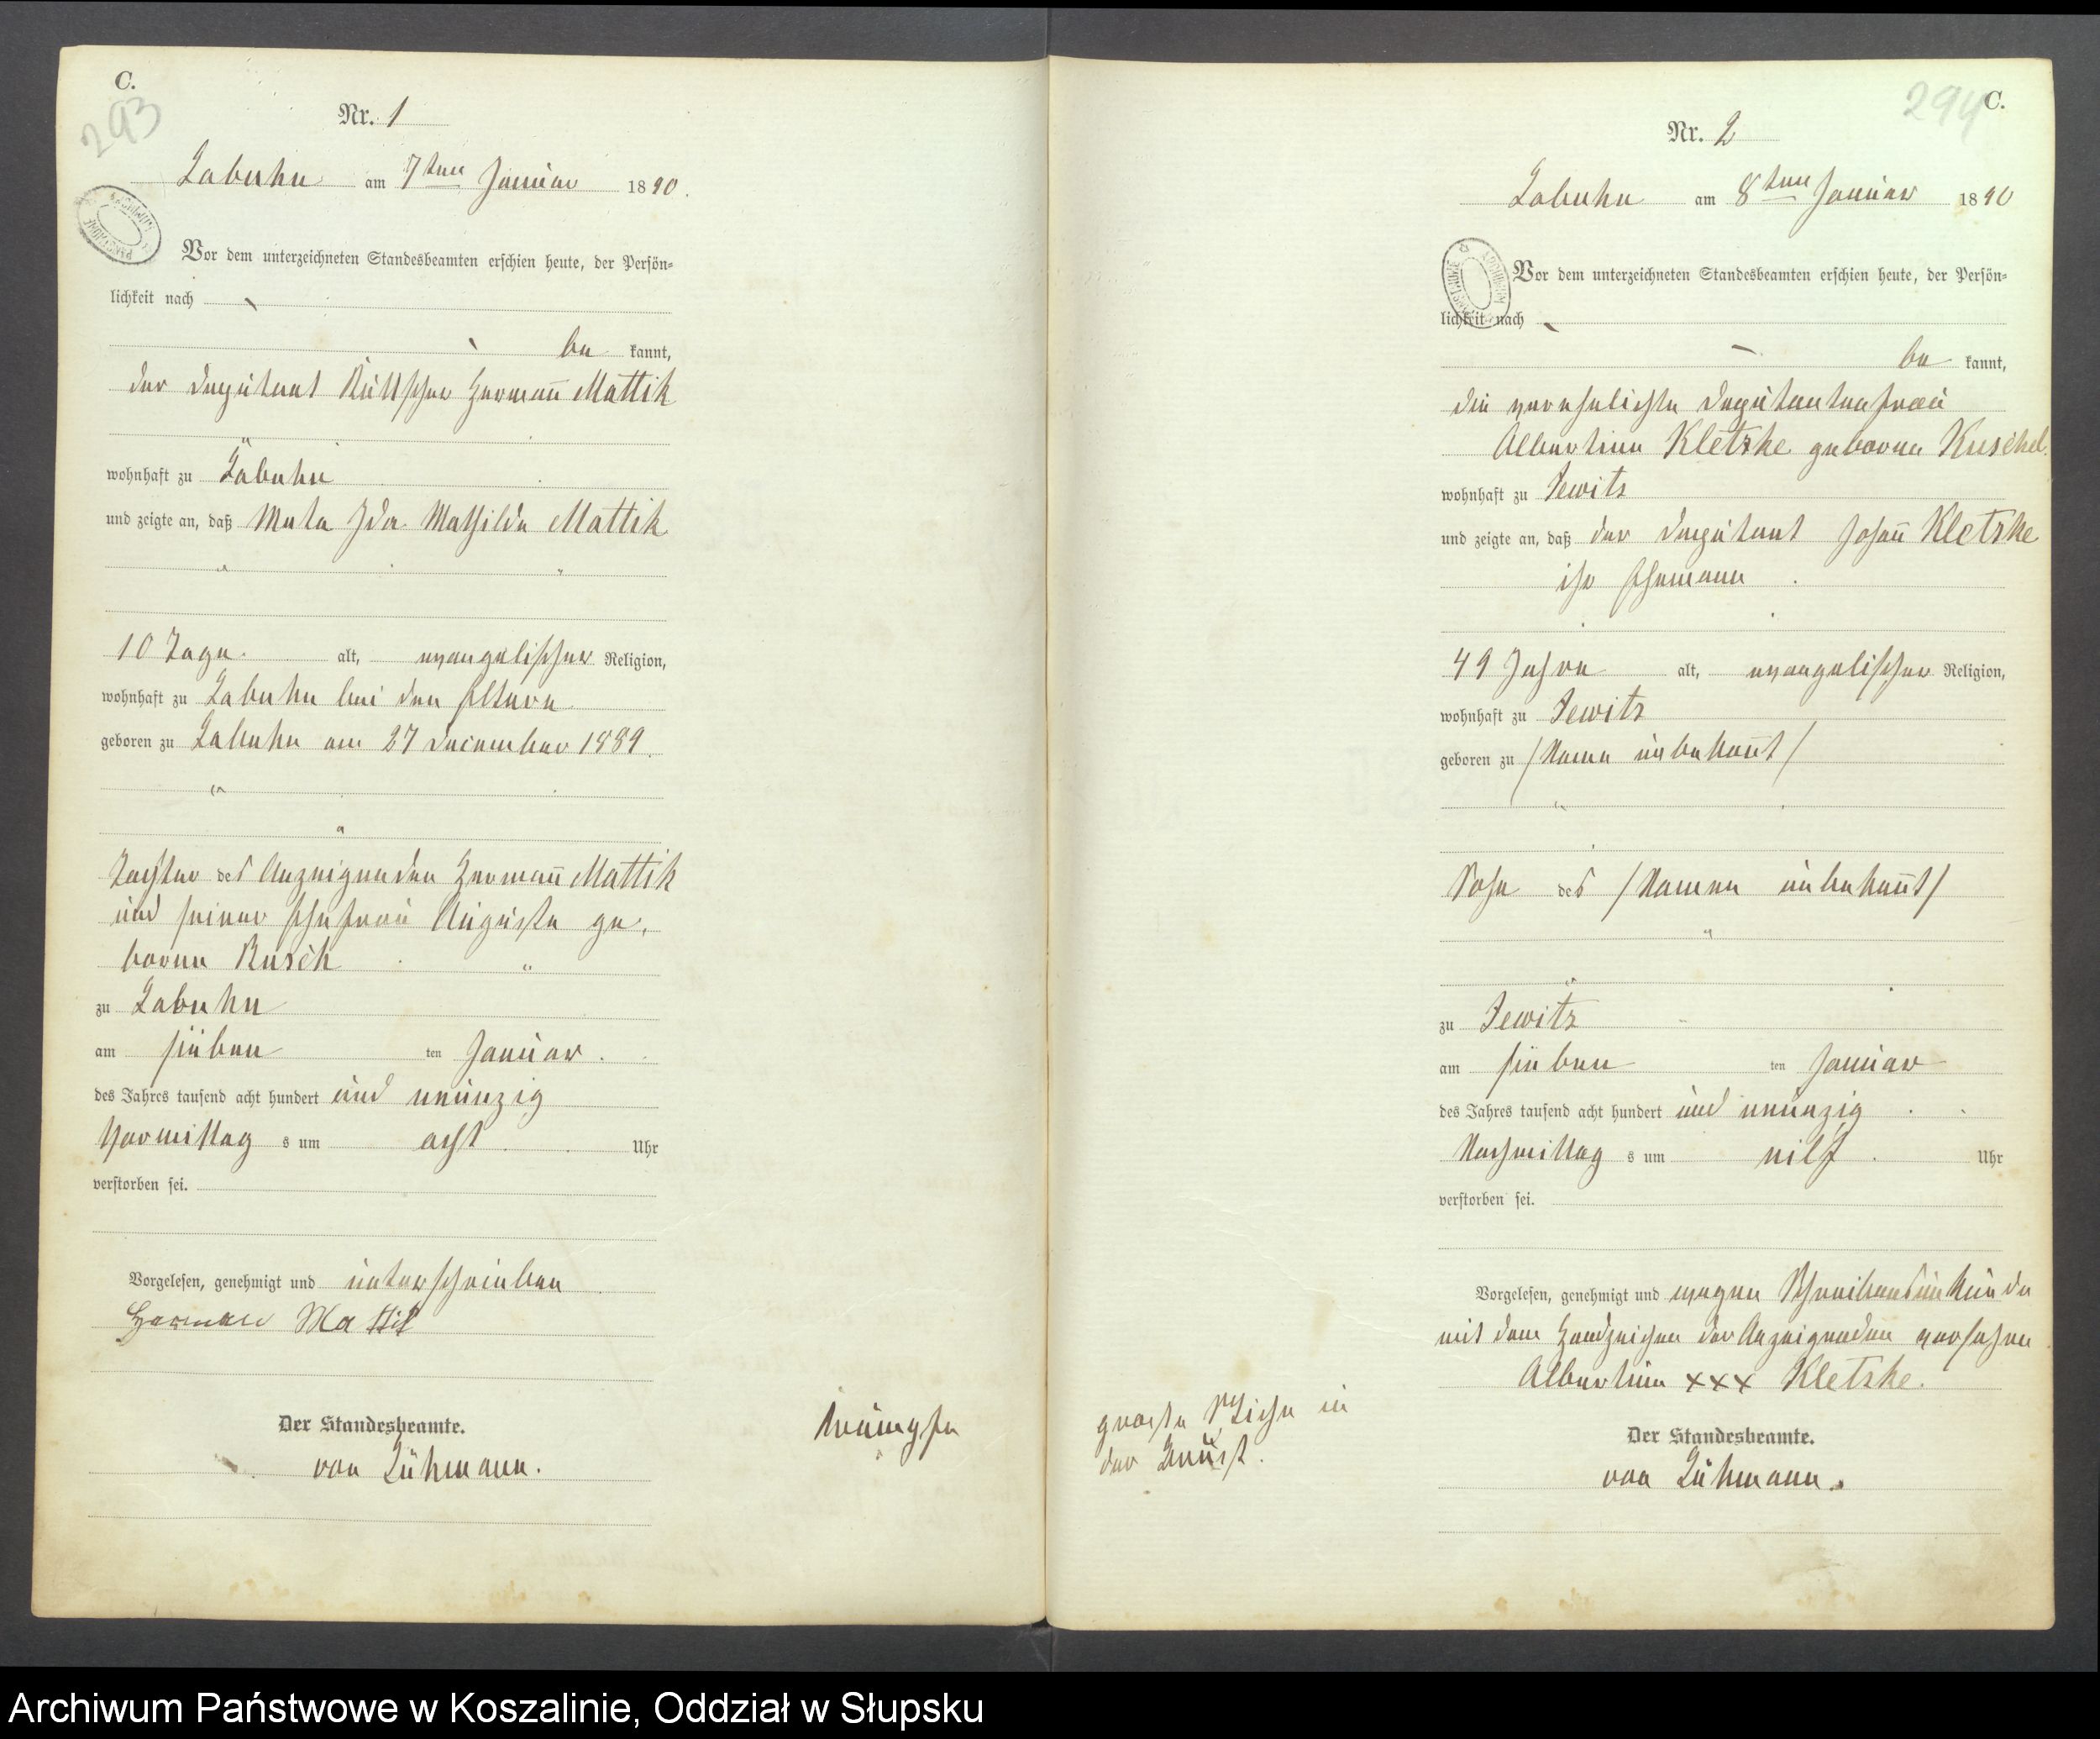 C.
293
Nr. 1
Labuhn am 7ten Januar 1890.
Vor dem unterzeichneten Standesbeamten erschien heute, der Persön-
lichkeit nach
be kannt,
der Deputant Kuttscher Hermañ Mattik
wohnhaft zu Labuhn
und zeigte an, daß Meta Ida Mathilde Mattik
10 Tage alt, evangelischer Religion,
wohnhaft zu Labuhn bei den Eltern
geboren zu Labuhn am 27 December 1889.
Tochter des Anzeigenden Hermañ Mattik
und seiner Ehefrau Auguste ge-
borne Rusch
zu Labuhn
am sieben ten Januar.
des Jahres tausend acht hundert und neunzig
Vormittag s um acht Uhr
verstorben sei.
Vorgelesen, genehmigt und unterschrieben
Herman Mattik
Der Standesbeamte.
von Lühmann.
Kraempfe
294
C.
Nr. 2
Labuhn am 8ten Januar 1890
Vor dem unterzeichneten Standesbeamten erschien heute, der Persön-
lichkeit nach
be kannt,
die verehelichte Deputantenfrau
Albertine Kletzke geborne Kuschel
wohnhaft zu Jewitz
und zeigte an, daß der Deputant Johañ Kletzke
ihr Ehemann.
49 Jahre alt, evangelischer Religion,
wohnhaft zu Jewitz
geboren zu /Name unbekañt/
Sohn des /Namen unbekañt/
zu Jewitz
am sieben ten Januar
des Jahres tausend acht hundert und neunzig
Nachmittag s um eilf Uhr
verstorben sei.
Vorgelesen, genehmigt und wegen Schreibensunkunde
mit dem Handzeichen der Anzeigenden versehen
Albertine xxx Kletzke.
Der Standesbeamte.
von Lühmann.
große Stiche in
der Brust.
Archiwum Państwowe w Koszalinie, Oddział w Słupsku